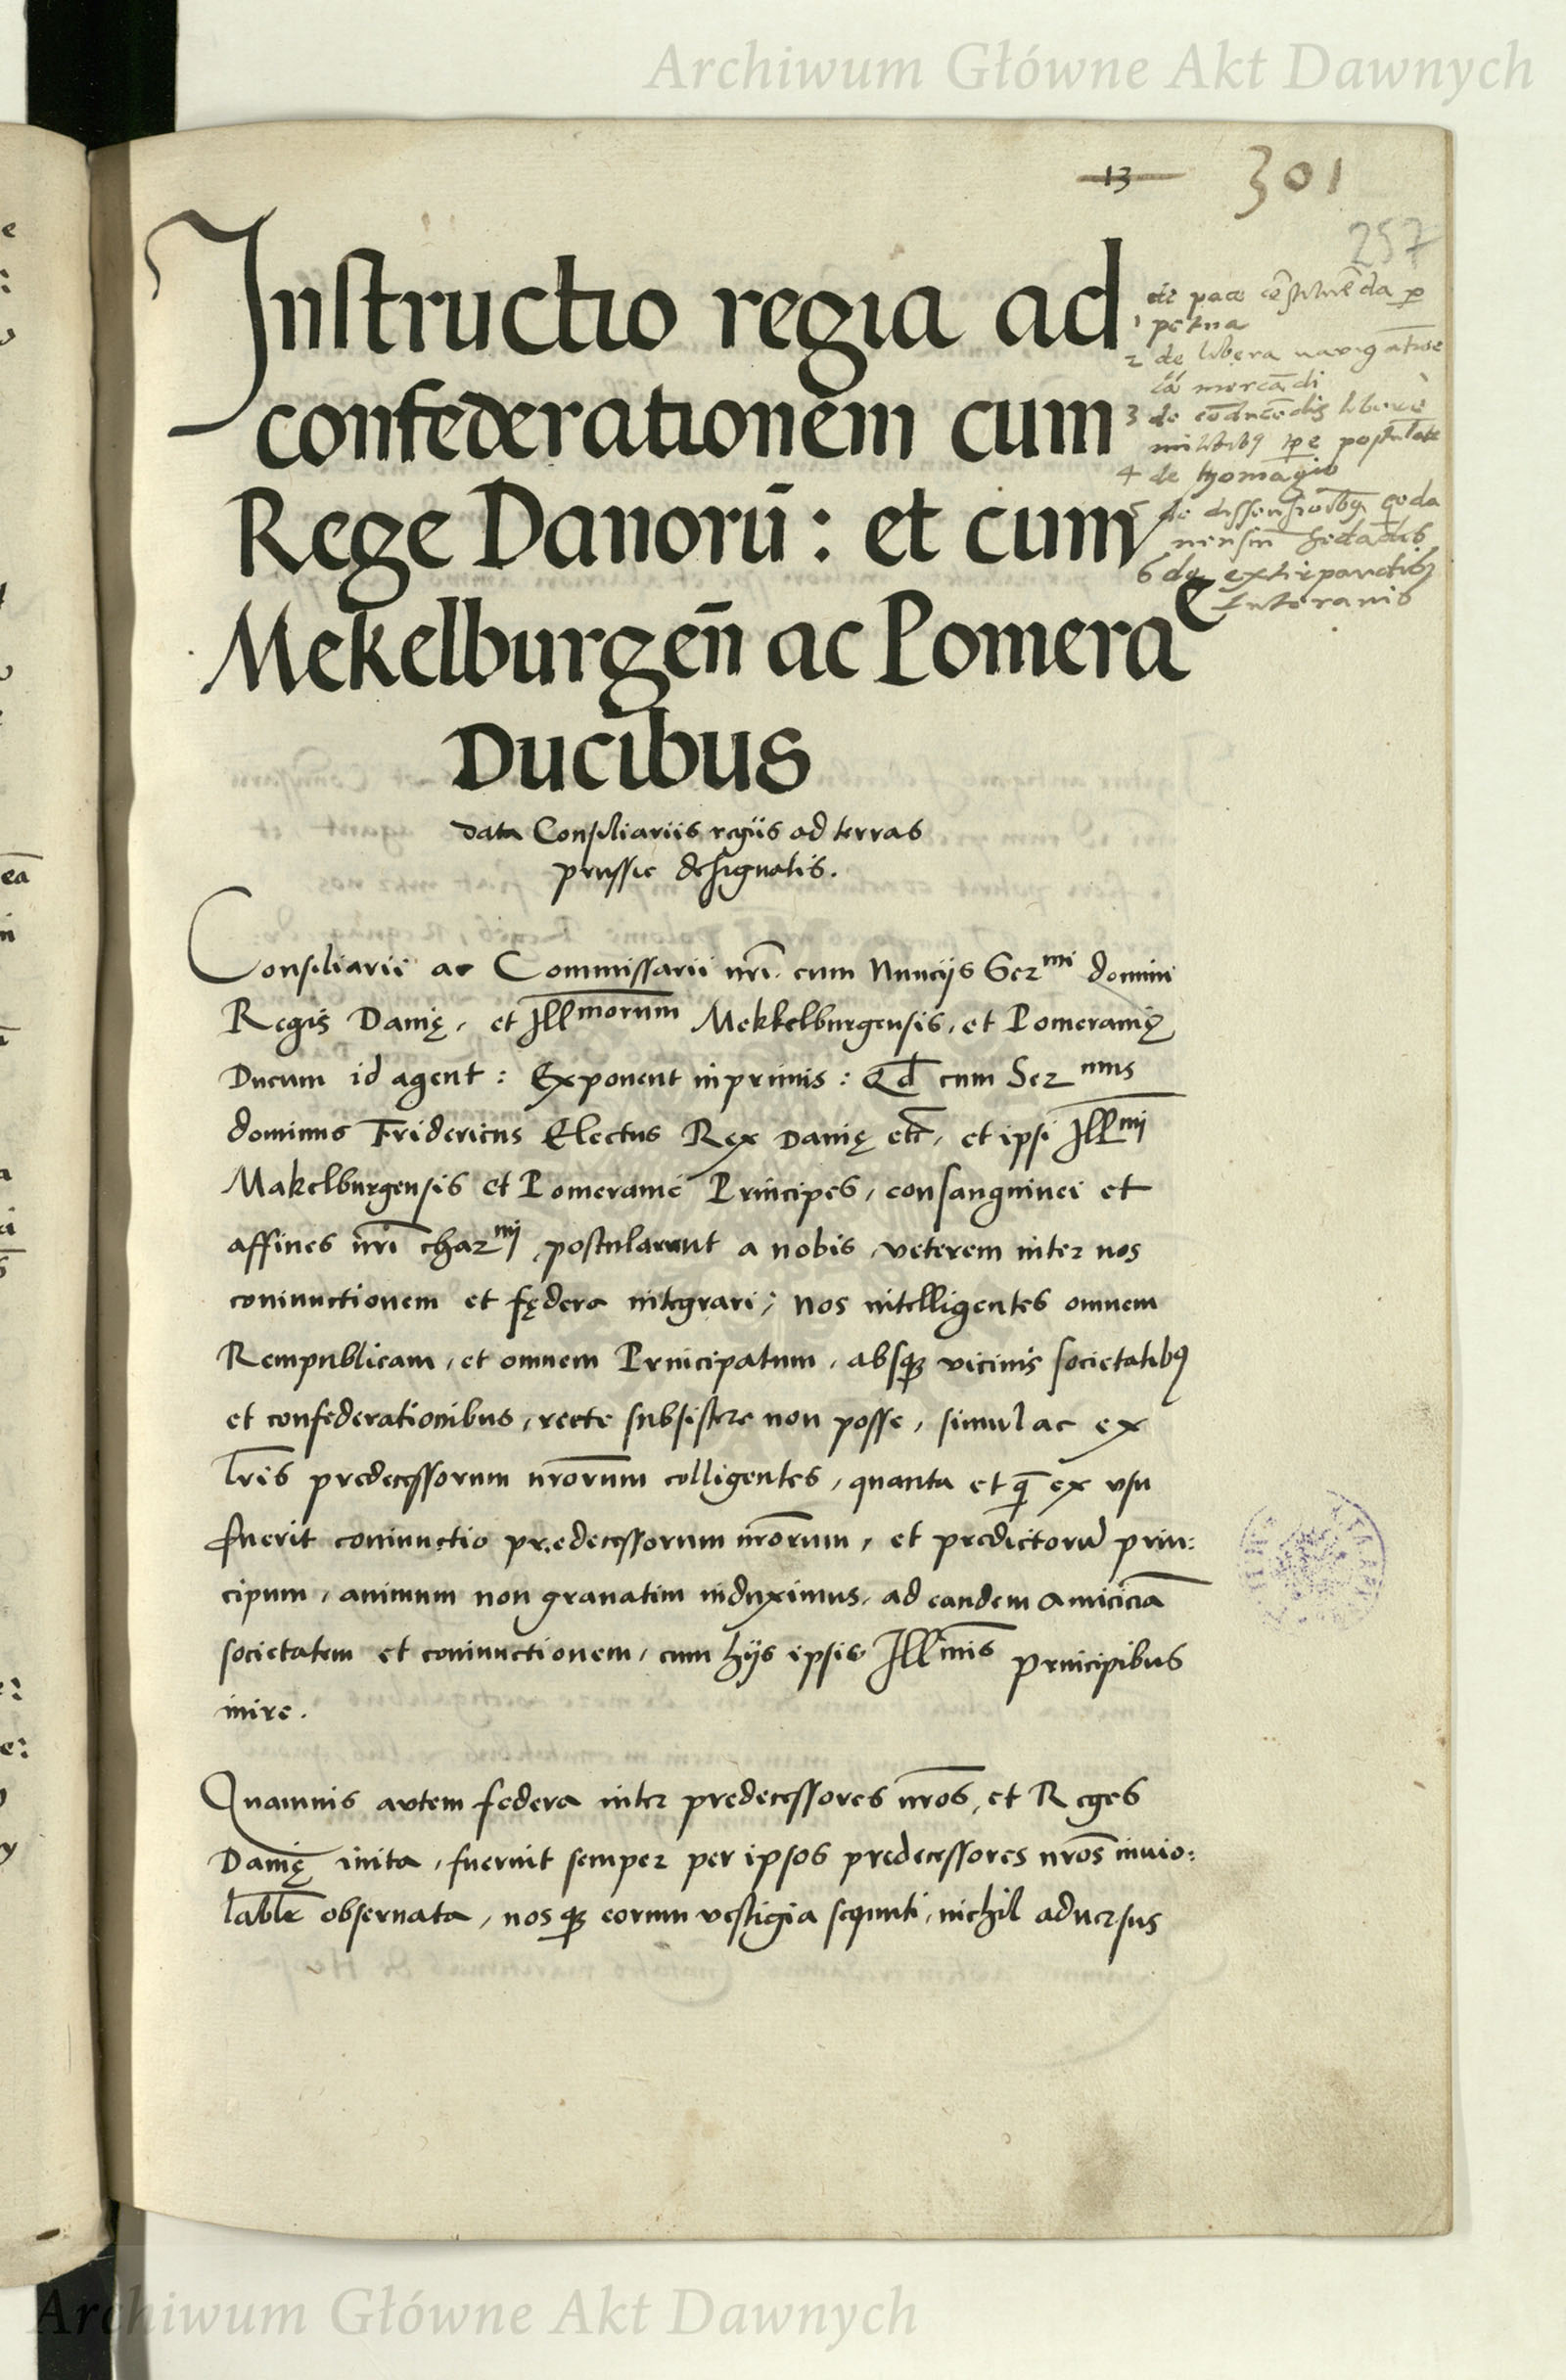 Archiwum Główne Akt Dawnych
13 301
257
Instructio regia ad
confederationem cum
Rege Danorū : et cum
Mekelburgen̄ ac Pomeraę
Ducibus
data Consiliariis regiis ad terras
prussie designatis.
de pace cōstituēda ꝑ
1 petua
2 de libera navigatiōe
mercādi
3 de cōducēdis libere
militibꝫ tꝑe
4 de homagio
5 de dissensiōibꝫ geda
nensiū sedādis
6 de extirpandis
luteranis
Consiliarii ac Commissarii nr̄i. cum Nuncijs Serᵐⁱ domini
Regis Danię, et Illᵐᵒʳᵘᵐ Mekkelburgensis, et Pomeranię
Ducum id agent : Exponent inprimis : Qd̄ cum Serⁿᵐᵘˢ
dominus Fridericus Electus Rex Danię etc̄, et ipsi Illᵐⁱ
Makelburgensis et Pomeranie Principes, consanguinei et
affines nr̄i charᵐⁱ, postularunt a nobis, veterem inter nos
coniunctionem et fędera integrari; Nos intelligentes omnem
Rempublicam, et omnem Principatum, absqꝫ vicinis societatibꝰ
et confederationibus, recte subsistere non posse, simul ac ex
lr̄is predecessorum nr̄orum colligentes, quanta et q̄ꝫ ex vsu
fuerit coniunctio predecessorum nr̄orum, et predictorū prin:
cipum, animum non gravatim induximus, ad eandem amiciciā
societatem et coniunctionem, cum hijs ipsis Illᵐⁱˢ principibus
inire.
Quamuis autem federa inter predecessores nr̄os, et Reges
Danię inita, fuerint semper per ipsos predecessores nr̄os inuio:
labl̄r obseruata, nosqꝫ eorum vestigia sequuti, nichil aduersus
Archiwum Główne Akt Dawnych